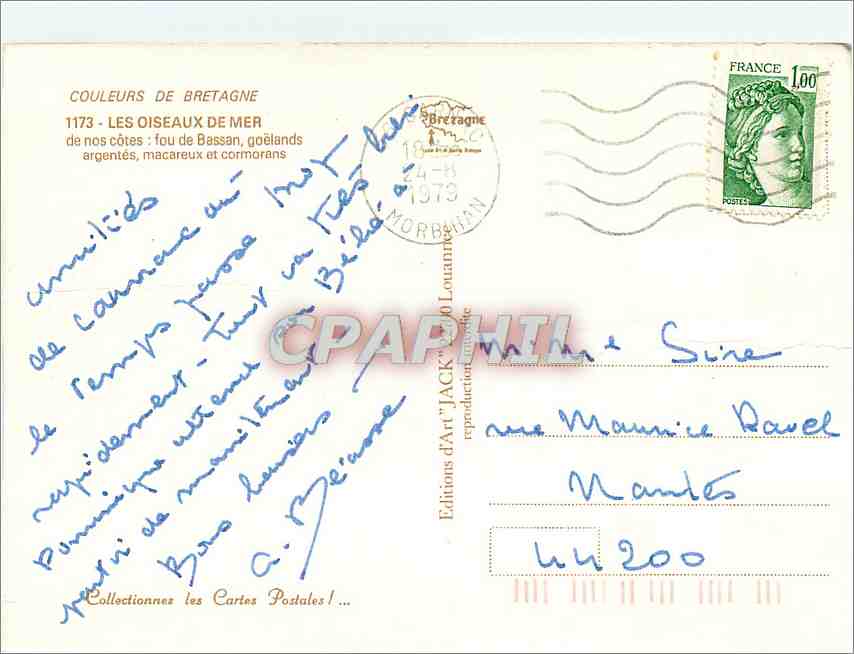 COULEURS DE BRETAGNE
1173 - LES OISEAUX DE MER
de nos côtes : fou de Bassan, goëlands
argentés, macareux et cormorans
Bretagne
18
24-8
1979
MORBIHAN
FRANCE 1,00
POSTES
amitiés
de Carnac où
le temps passe trop
rapidement - Tout va très bien
Dominique attend son Bébé à
partir de maintenant
Bons baisers
G. Béasse
Editions d'Art "JACK" Louannec
reproduction interdite
CPAPHIL
Mme Sire
rue Maurice Ravel
Nantes
44200
Collectionnez les Cartes Postales ! ...